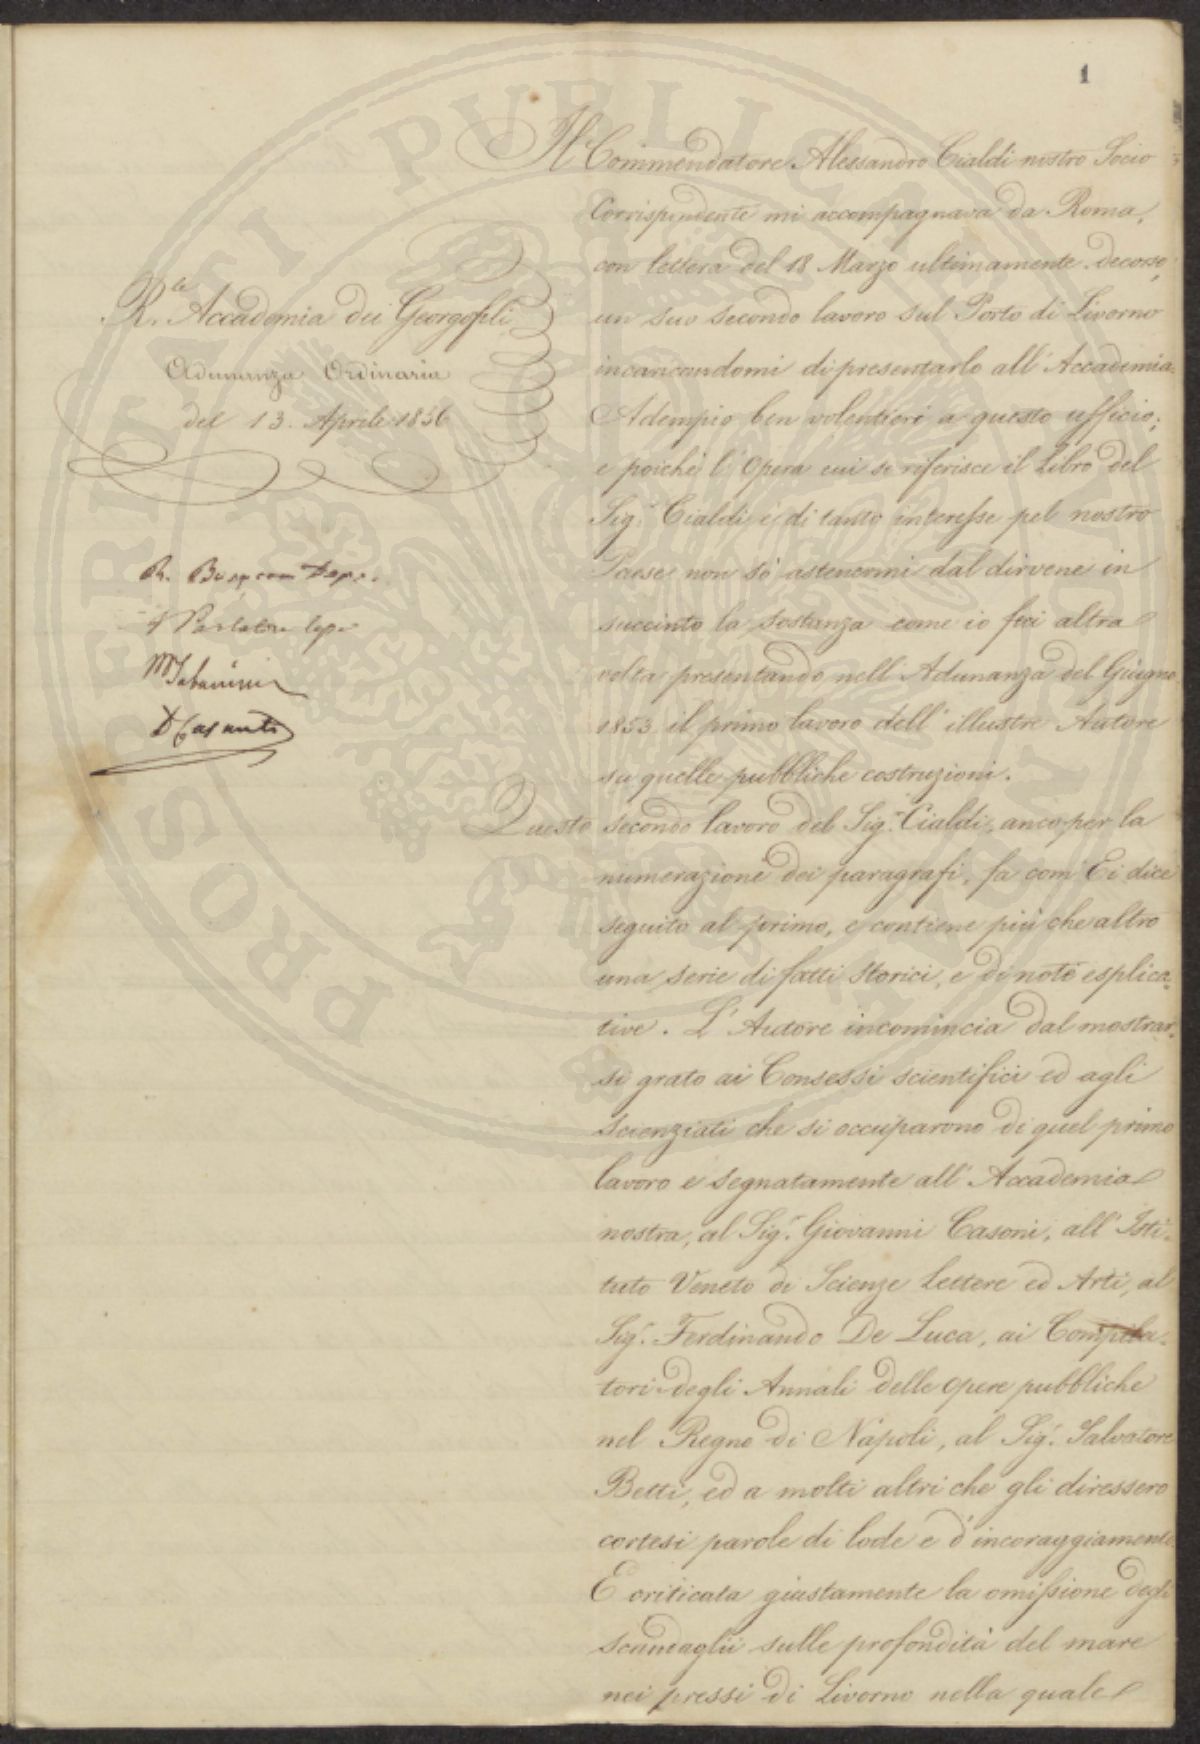 1
R.le Accademia dei Georgofili
Adunanza Ordinaria
del 13. Aprile 1856
Il Commendatore Alessandro Cialdi nostro Socio
Corrispondente mi accompagnava da Roma,
con lettera del 18 Marzo ultimamente decorso,
un suo secondo lavoro sul Porto di Livorno
incaricandomi di presentarlo all' Accademia.
Adempio ben volentieri a questo ufficio;
e poichè l' Opera cui si riferisce il Libro del
Sig.r Cialdi è di tanto interesse pel nostro
Paese non sò astenermi dal dirvene in
succinto la sostanza come io feci altra
volta presentando nell' Adunanza del Giugno
1853 il primo lavoro dell' illustre Autore
su quelle pubbliche costruzioni.
Questo secondo lavoro del Sig.r Cialdi, anco per la
numerazione dei paragrafi, fa com' Ei dice
seguito al primo, e contiene più che altro
una serie di fatti storici, e di note esplica-
tive. L' Autore incomincia dal mostrar-
si grato ai Consessi scientifici ed agli
scienziati che si occuparono di quel primo
lavoro e segnatamente all' Accademia
nostra, al Sig.r Giovanni Casoni, all' Isti-
tuto Veneto di Scienze Lettere ed Arti, al
Sig.r Ferdinando De Luca, ai Compila-
tori degli Annali delle opere pubbliche
nel Regno di Napoli, al Sig.r Salvatore
Betti, ed a molti altri che gli diressero
cortesi parole di lode e d' incoraggiamento.
E criticata giustamente la omissione degli
scandaglii sulle profondità del mare
nei pressi di Livorno nella quale
R.
Parlatore
D Casanti
PROSPERITATI PUBLICAE